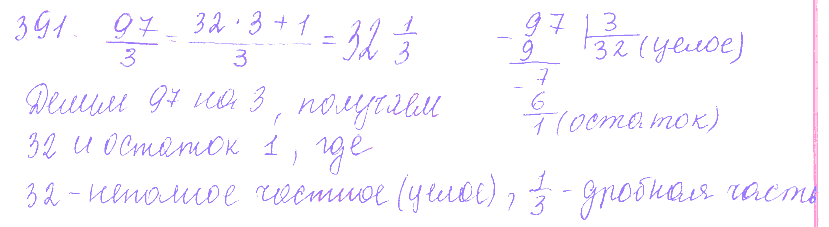 391. 97/3 = 32·3+1/3 = 32 1/3
- 97 | 3
9 32 (целое)
- 7
6
1 (остаток)
Делим 97 на 3, получаем
32 и остаток 1, где
32 - неполное частное (целое), 1/3 - дробная часть